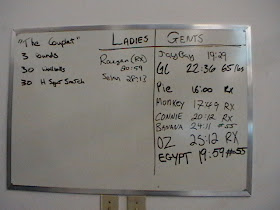 "The Couplet"
3 rounds
30 wallballs
30 H Sqt Snatch
LADIES
Raegan (RX)
20:59
Selna 28:13
GENTS
JayBay 19:29
GL 22:36 65/lbs
Pie 16:00 RX
Monkey 17:49 RX
CONNIE 20:12 RX
BANANA 24:11 #55
OZ 25:12 RX
EGYPT 19:59 #55